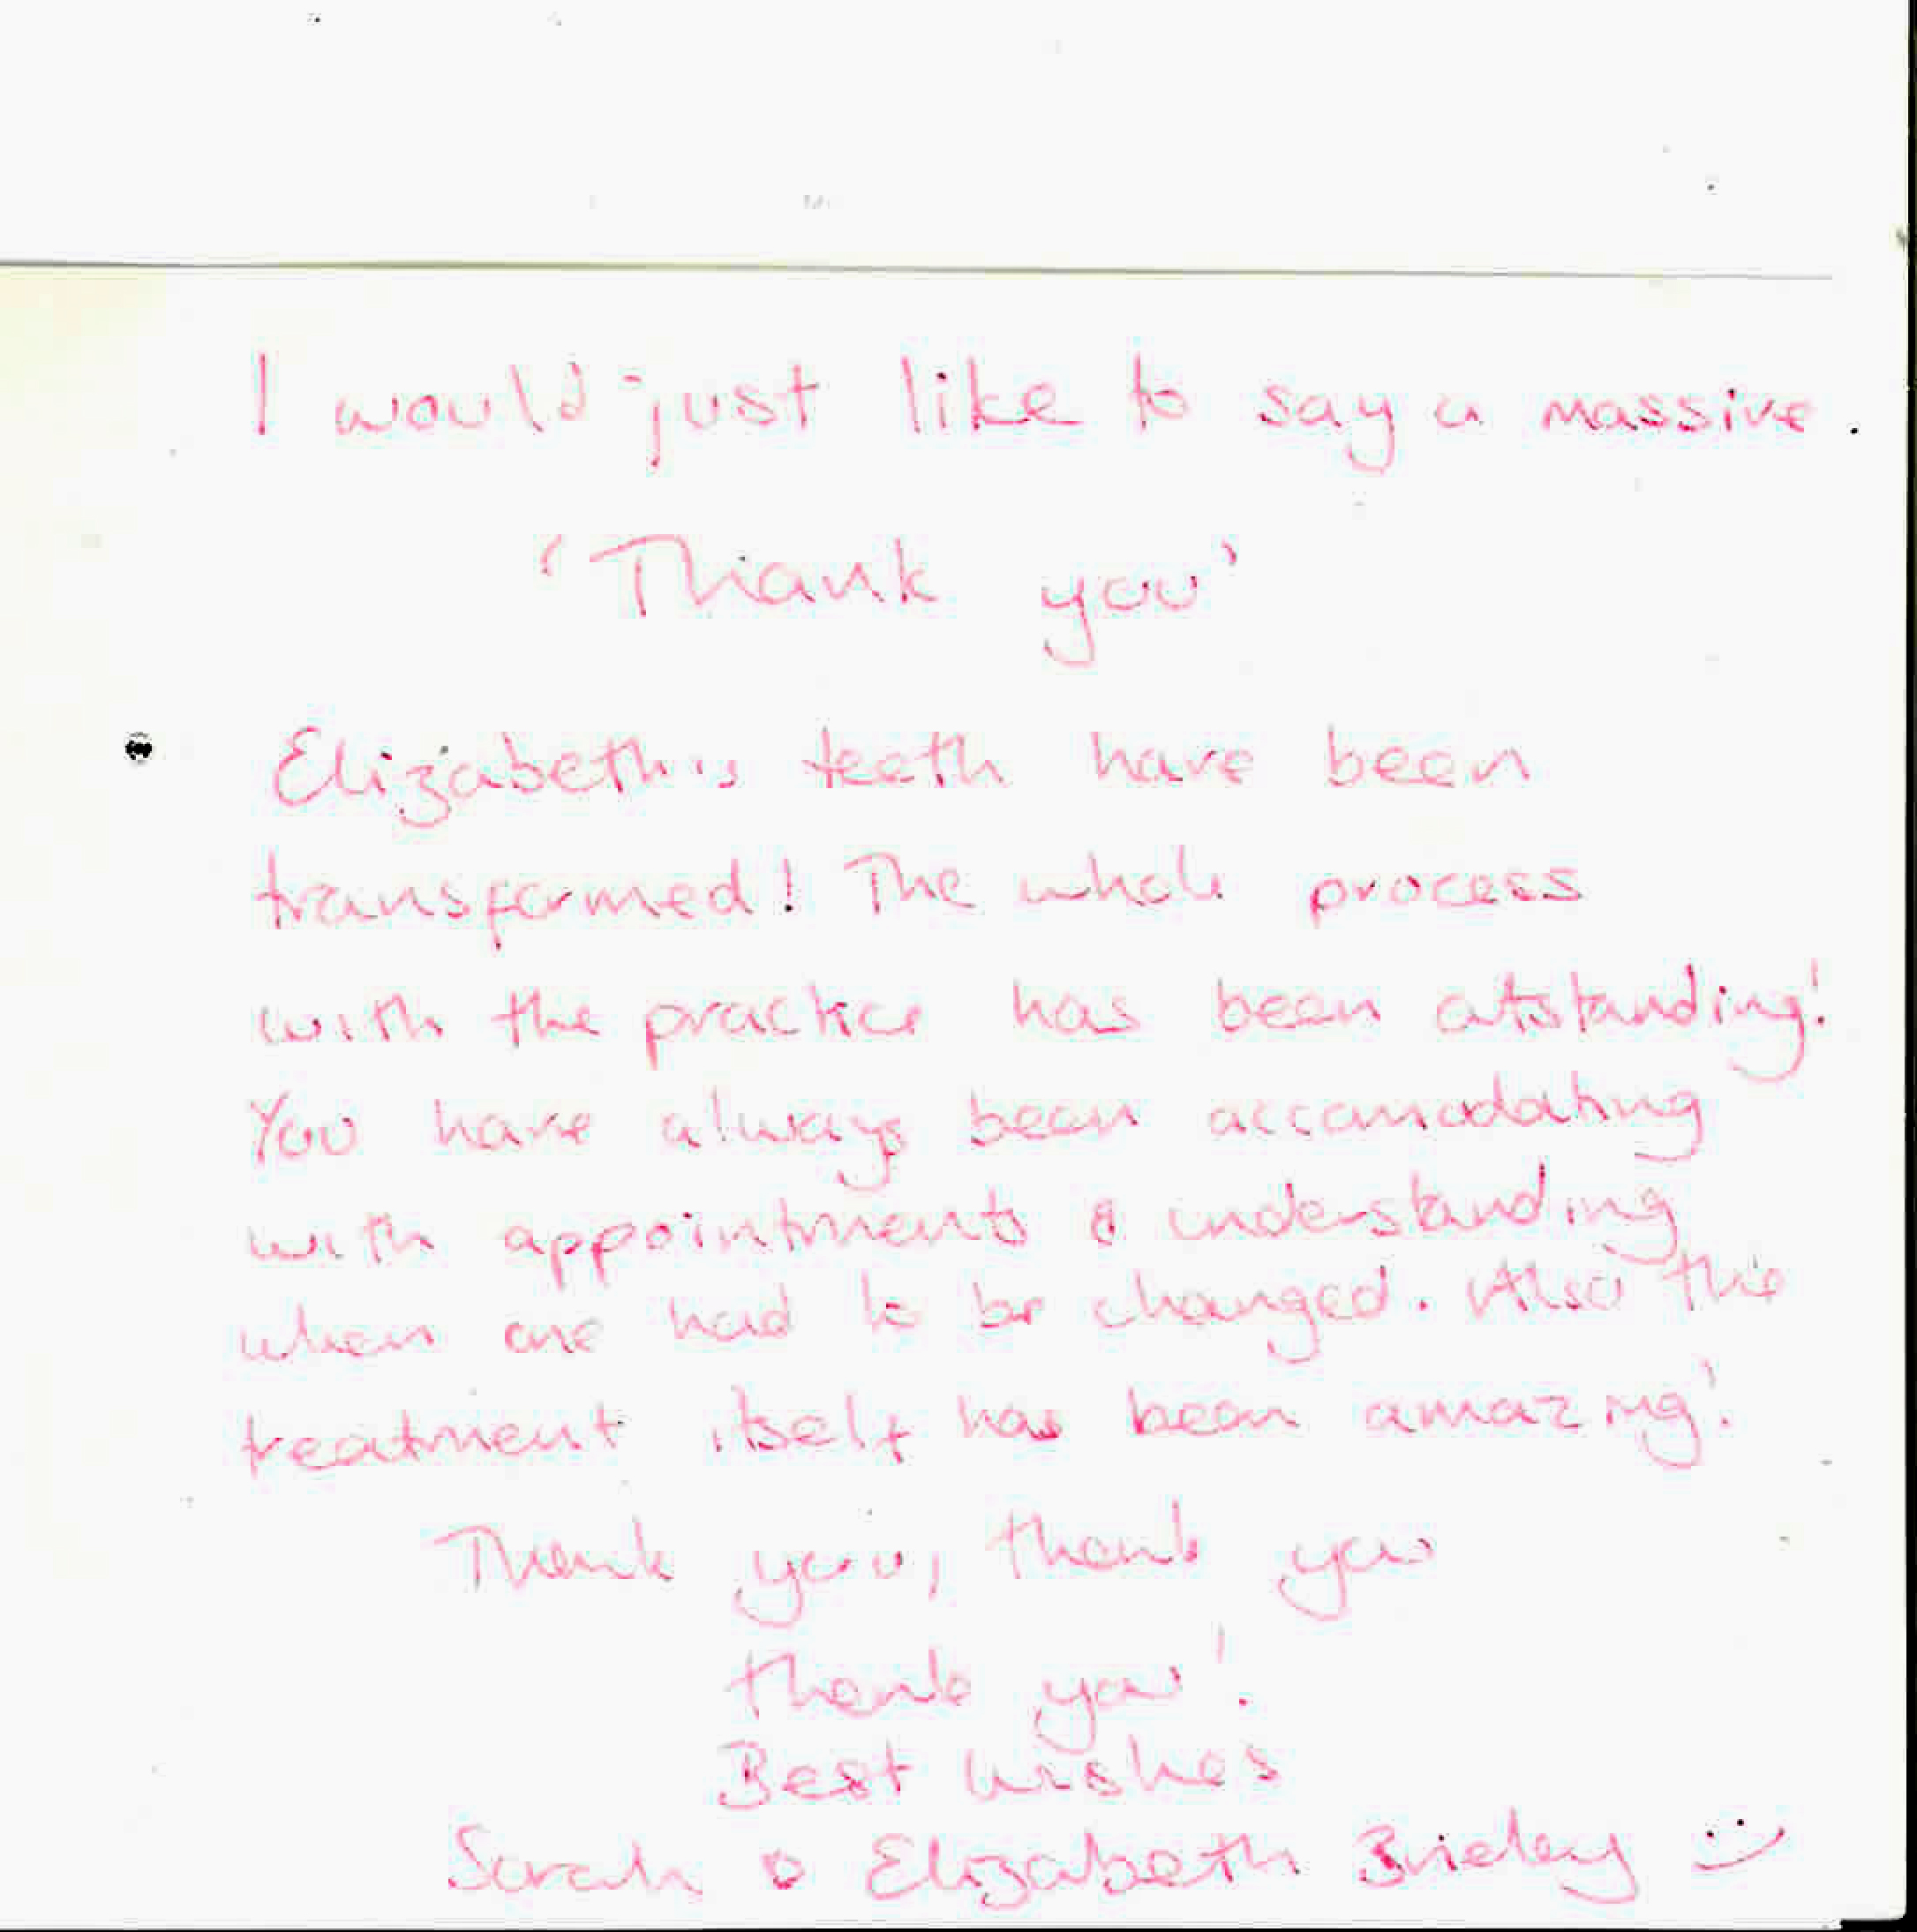 I would just like to say a massive
'Thank you'
Elizabeth's teeth have been
transformed! The whole process
with the practice has been outstanding!
You have always been accomodating
with appointments & understanding
when one had to be changed. Also the
treatment itself has been amazing!
Thank you, thank you
thank you!
Best wishes
Sarah & Elizabeth :)